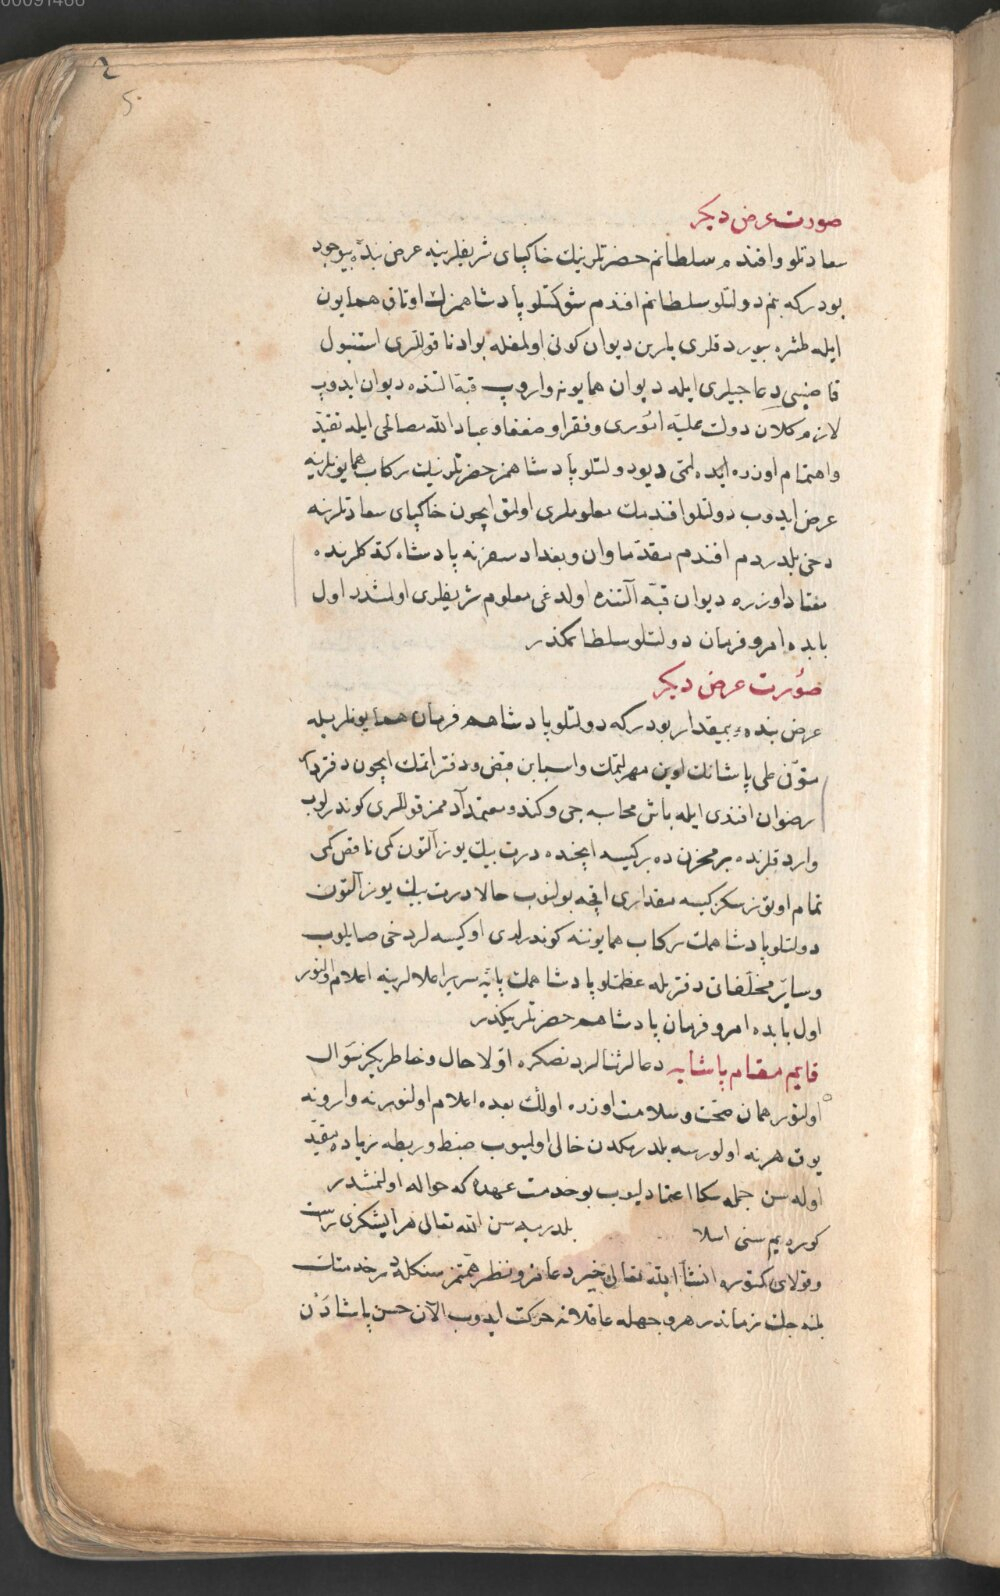 00091486
٤
صورت عرض دیکر
سعادتلو وافندم سلطانم حضرتلرینك خاکپای شریفلرینه عرض بندۀ بیوجود
بودرکه بنم دولتلو سلطانم افندم شوکتلو پادشاهمزك اوتاق همایون
ایله طشره بیوردقلری یارین دیوان کونی اولمغله بوادنا قوللری استنبول
قاضیسی دعاجیلری ایله دیوان همایونه واروب قبه التنده دیوان ایدوب
لازم کلان دولت علیه امورى وفقرا وضعفا وعباد الله مصالحی ایله تقید
واهتمام اوزره ایکده لمتی دیو دولتلو پادشاهمز حضرتلرینك رکاب همایونلرینه
عرض ایدوب دولتلو افندمك معلوملری اولمق ایچون خاکپای سعادتلرینه
دخی بلدردم افندم مقدما وان وبغداد سفرینه پادشاه کتدکلرنده
معتاد اوزره دیوان قبه آلتنده اولدغی معلوم شریفلری اولمشدر اول
بابده امر وفرمان دولتلو سلطانمکدر
صورت عرض دیکر
عرض بندۀ بیمقدار بودرکه دولتلو پادشاهم فرمان همایونلریله
متوفی علی پاشانك اوین مهرلیمك واسبابن قبض ودفتر اتمك ایچون دفتردار
رضوان افندی ایله باش محاسبه جی وکندو معتمد آدممز قوللری کوندرلوب
واردقلرنده بر مخزن ده بر کیسه ایچنده درت بیك یوز آلتون کمی ناقص کمی
تمام اوتوز سکز کیسه مقداری اقچه بولنوب حالا درت بیك یوز آلتون
دولتلو پادشاهمك رکاب همایوننه کوندرلدی اوکیسه لر دخی صایلوب
وسایر مخلفاتی دفتریله عظمتلو پادشاهمك پایۀ سریر اعلالرینه اعلام اولنور
اول بابده امر وفرمان پادشاهم حضرتلریکدر
قایم مقام پاشایه دعالر ثنالردنصکره اولا حال وخاطریکز سؤال
اولنور همان صحت وسلامت اوزره اولك بعده اعلام اولنورنه وارونه
یوق هرنه اولورسه بلدرمکدن خالی اولمیوب ضبط وربطه زیاده مقید
اوله سن جمله سکا اعتماد لیوب بو خدمت عهدکه حواله اولنمشدر
کوره یم سنی اسلا بلدریه سن الله تعالی هر ایشکزی راست
وقولای کتوره انشا الله تعالی خیر دعامز ونظر همتمز سنکله در خدمتك
بلنه جك زماندر هر وجهله عاقلانه حرکت ایدوب الآن حسن پاشادن